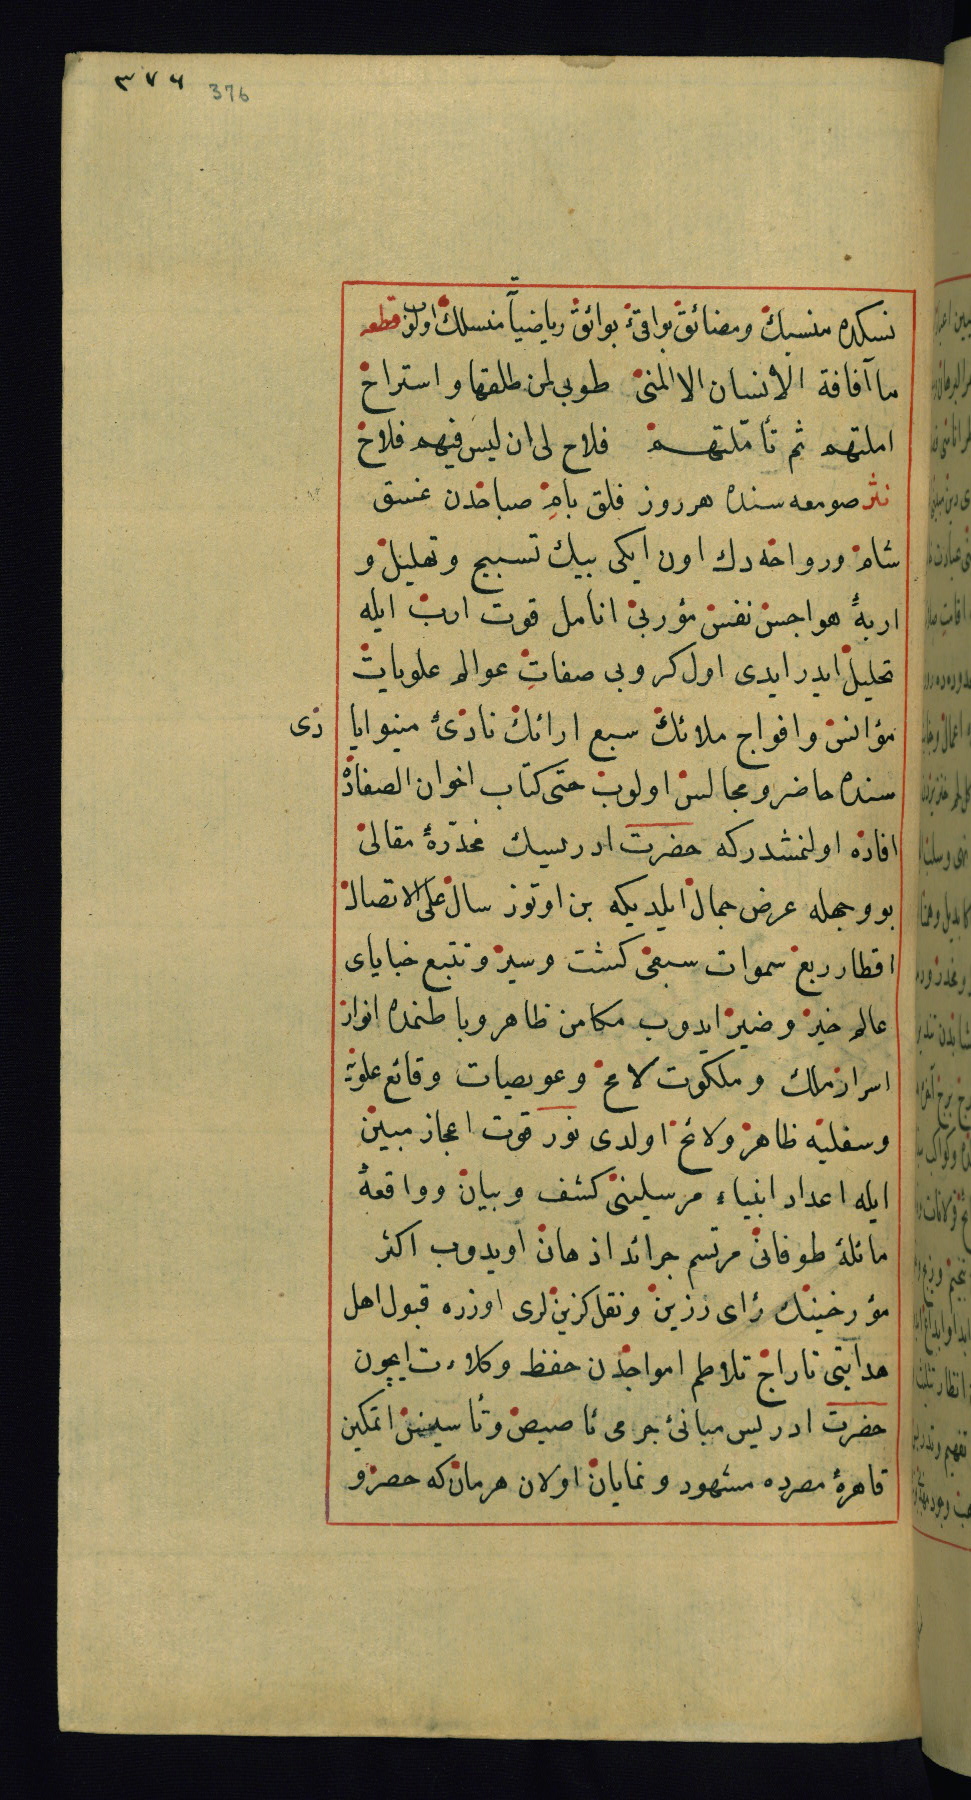 ٣٧٦ 376
نسكده منسبك ومضائق بواقئ بوائق رياضياً منسلك اولوب قطعه
ما آفافة الانسان الا المنى طوبى لمن طلقها واستراح
املتهم ثم تأمّلتهم فلاح لى ان ليس فيهم فلاح
نثر صومعه سنده هر روز فلق بامِ صباحدن غسق
شام ورواحه دك اون ايكى بيك تسبيح وتهليل و
اربهٔ هواجس نفس مؤربى انامل قوت ارب ايله
تحليل ايدر ايدى اول كروبى صفاتِ عوالم علويات
مؤانس وافواج ملائك سبع ارائك نادئ مينوايا
زى
سنده حاضر ومجالس اولوب حتى كتاب اخوان الصفاده
افاده اولنمشدركه حضرت ادريسك مخدّرهٔ مقالى
بووجهله عرض جمال ايلديكه بن اوتوز سال على الاتصال
اقطار ربع سموات سبعى كشت وسير وتتبع خباياى
عالم خير وضير ايدوب مكامن ظاهر وباطنمده انوار
اسرار ملك وملكوت لامح وعويصيات وقائع علويّه
وسفليّه ظاهر ولائح اولدى نور قوت اعجاز مبين
ايله اعداد انبياء مرسلينى كشف وبيان وواقعهٔ
مائلهٔ طوفانى مرتسم جرائد اذهان اويدوب اكثر
مؤرخينك رأى رزين ونقل كزينلرى اوزره قبول اهل
هدايتى تاراج تلاطم امواجدن حفظ وكلاءت ايچون
حضرت ادريس مبانئ جرمى تأصيص وتأسيسن اتمكين
قاهرهٔ مصرده مشهود ونمايان اولان هرمان كه حصر و